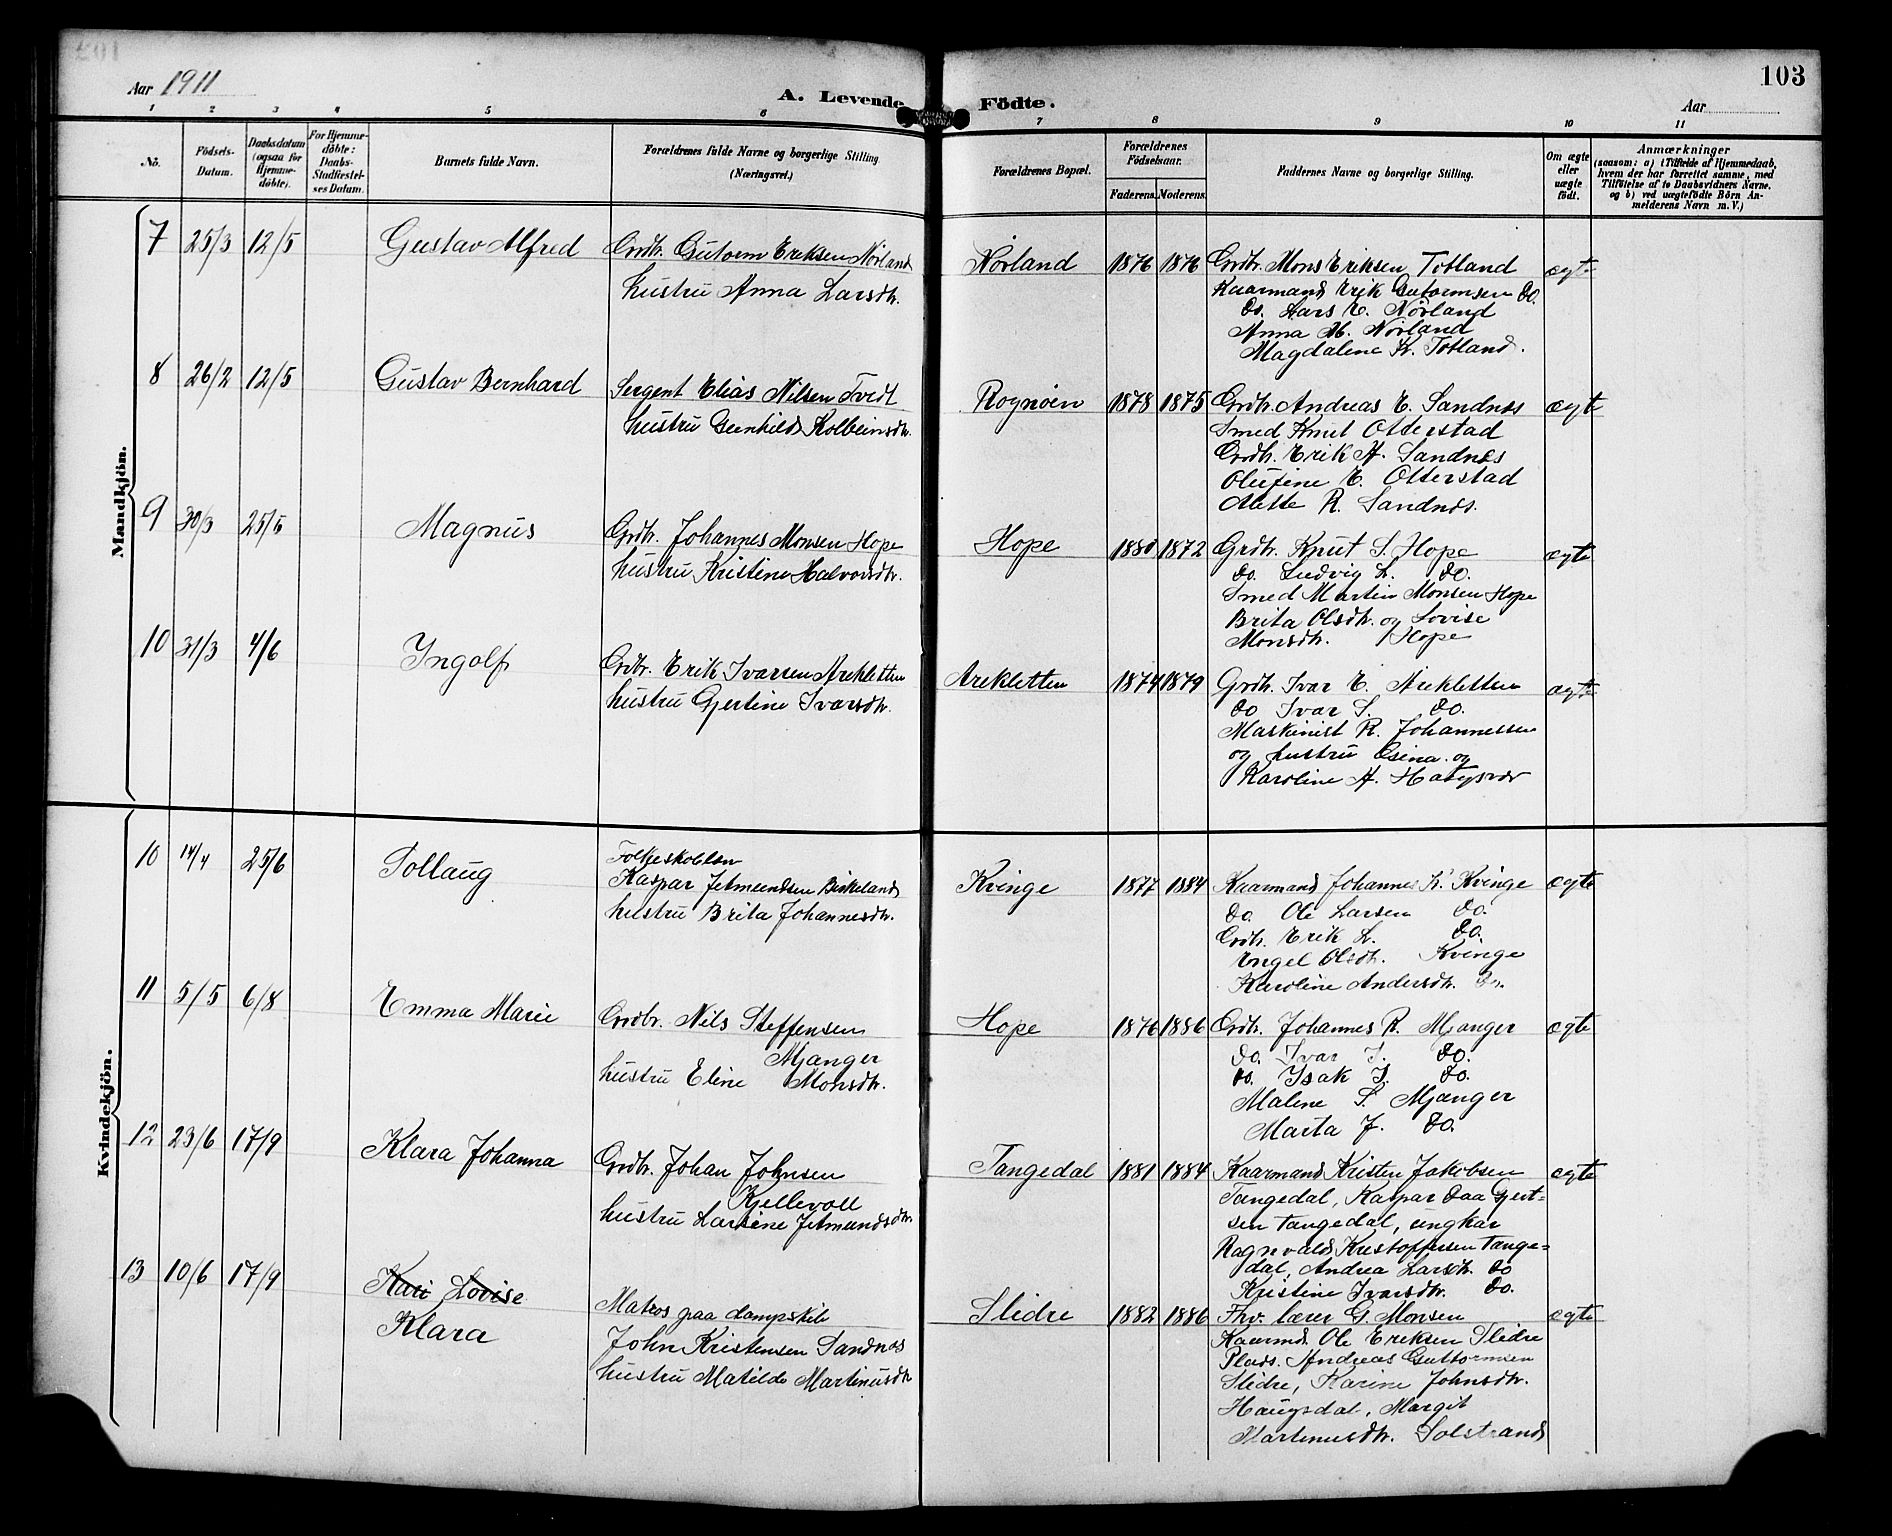 Aar 1911
A. Levende
Födte.
103
Aar
1 2 3 4 5 6 7 8 9 10 11
No.
Födsels-Datum.
Daabsdatum (ogsaa for Hjemme-döbte).
For Hjemme-döbte: Daabs-Stadfæstel-ses Datum.
Barnets fulde Navn.
Forældrenes fulde Navne og borgerlige Stilling (Næringsvei.)
Forældrenes Bopæl.
Forældrenes Födselsaar.
Faderens. Moderens.
Faddernes Navne og borgerlige Stilling.
Om ægte eller uægte födt.
Anmærkninger
(saasom: a) i Tilfælde af Hjemmedaab, hvem der har forrettet samme, med Tilföielse af to Daabsvidners Navne, og b) ved uægtefödte Börn An-melderens Navn m. V.)
Mandkjön.
7 25/3 12/5 Gustav Alfred
Grdbr. Gutorm Eriksen Nörland
hustru Anna Larsdtr.
Nörland 1876 1876
Grdbr. Mons Eriksen Totland
Kaarmand Erik Gutormsen do.
do. Lars E. Nörland
Anna M. Nörland
Magdalene K. Totland.
ægte
8 26/2 12/5 Gustav Bernhard
Sergent Elias Nilsen Tvedt
hustru Gunhild Kolbeinsdtr.
Rognöen 1878 1875
Grdbr. Andreas E. Sandnes
Smed Knut Otterstad
Grdbr. Erik A. Sandnes
Olufine E. Otterstad
Alette R. Sandnes.
ægte
9 30/3 25/5 Magnus
Grdbr. Johannes Monsen Hope
hustru Kristine Halvorsdtr.
Hope 1880 1872
Grdbr. Knut S. Hope
do. Ludvig L. do.
Smed Martin Monsen Hope
Brita Olsdtr. og Lovise
Monsdtr. Hope
ægte
10 31/3 4/6 Ingolf
Grdbr. Erik Ivarsen Arekletten
hustru Gjertine Ivarsdtr.
Arekletten 1874 1879
Grdbr. Ivar E. Arekletten
do Ivar S. do.
Maskinist R. Johannessen
og hustru Osina og
Karoline A.
ægte
Kvindekjön.
10 14/4 25/6 Sollaug
Folkeskolelær
Kaspar Jetmundsen Birkeland
hustru Brita Johannesdtr.
Kvinge 1877 1884
Kaarmand Johannes K. Kvinge
do. Ole Larsen do.
Grdbr. Erik L. do.
Engel Olsdtr. Kvinge
Karoline Andersdtr. do.
ægte
11 5/5 6/8 Emma Marie
Grdbr. Nils Steffensen
Mjanger
hustru Eline Monsdtr.
Hope 1876 1886
Grdbr. Johannes R. Mjanger
do. Ivar J. do.
do. Isak J. do.
Malene S. Mjanger
Marta J. do.
ægte
12 23/6 17/9 Klara Johanna
Grdbr. Johan Johnsen
Kjellevoll
hustru Larsine Jetmundsdtr.
Tangedal 1881 1884
Kaarmand Kristen Jakobsen
Tangedal, Kaspar Daa Gjert=
sen Tangedal, ungkar
Ragnvald Kristoffersen Tange=
dal, Andrea Larsdtr. do
Kristine Ivarsdtr. do.
ægte
13 10/6 17/9 Kari Lovise
Klara
Matros paa dampskib
John Kristensen Sandnes
hustru Matilde Martinusdtr
Slidre 1882 1886
Fhv. lærer G. Monsen
Kaarmd. Ole Eriksen Slidre
Plads. Andreas Guttormsen
Slidre, Karine Johnsdtr.
Haugsdal, Margit
Martinusdtr. Solstrand
ægte